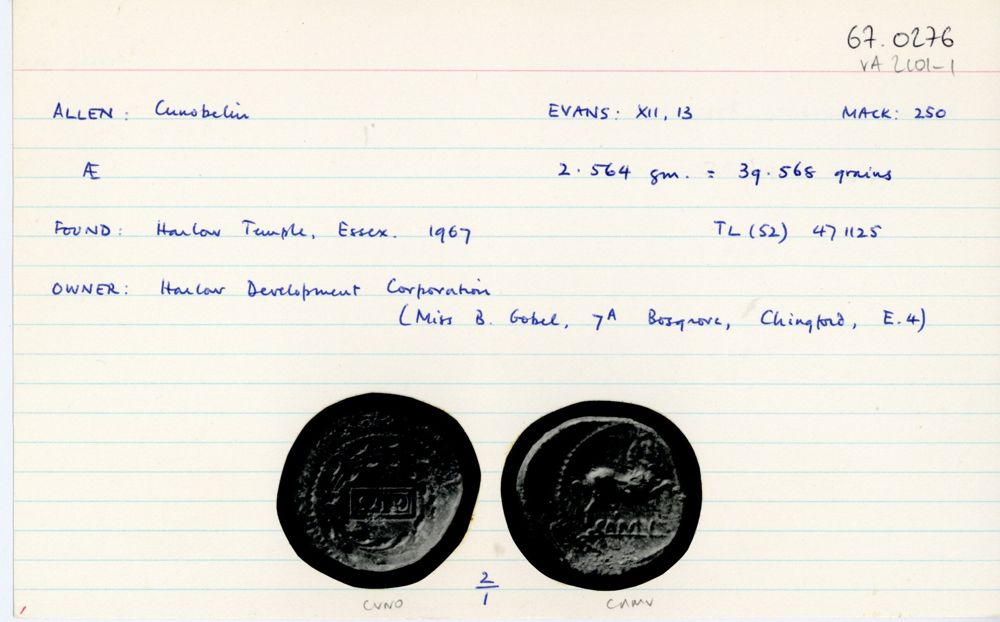 67.0276
VA 2101-1
ALLEN: Cunobelin EVANS: XII, 13 MACK: 250
Æ 2.564 gm. = 39.568 grains
FOUND: Harlow Temple, Essex. 1967 TL (52) 471125
OWNER: Harlow Development Corporation
(Miss B. Gobel, 7A Bosgrove, Chingford, E.4)
CUNO
CAMU
2/1
CVNO CAMV